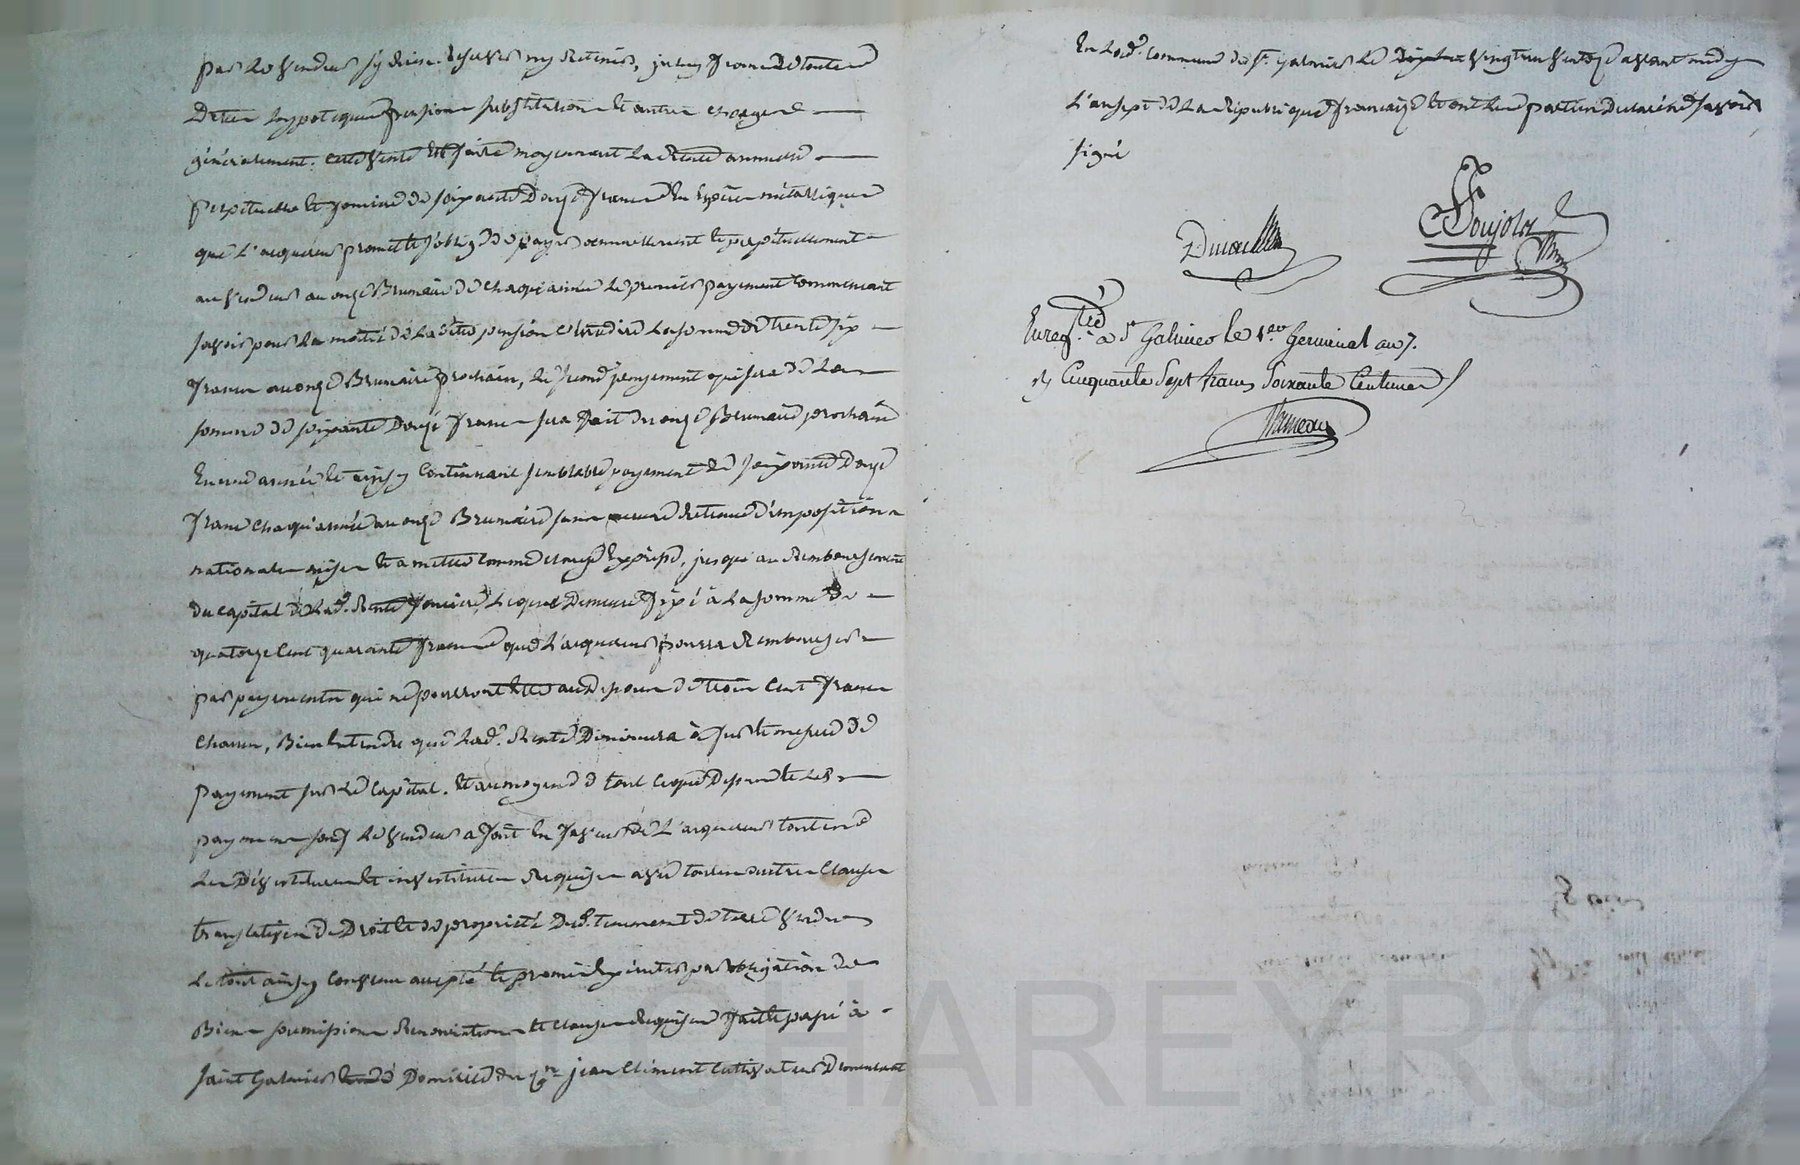 par le vendeur sy rien reserver ny retenir, jusqu francs de toutes
Dettes hypoteques pension substitution et autres charges
généralement. cette vente est faitte moyennant la Rente annuelle
perpetuelle et fonciere de soixante Douze francs en Espèces métalliques
que l'acquereur promet et s'oblige de payer annuellement et perpétuellement
au vendeur au onze Brumaire de chaque année le premier payement commencant
savoir pour la moitié de la ditte pension c'est à dire la somme de trente six
francs au onze Brumaire prochain, le second payement qui sera de la
somme de soixante Douze francs sera fait du onze Brumaire prochain
En une année et ainsy Continuant semblable payement de soixante Douze
francs chaque année au onze Brumaire sans aucune Retenue d'imposition
nationale mise et a mettre comme clause Expresse, jusqu'au Remboursement
du capital de lad.e Rente fonciere lequel Demeure fixé à la somme de
quatorze Cent quarante francs que l'acquereur pourra Rembourser
par payements qui ne pourront être au Dessous de trois Cent francs
chacun, Bien Entendu que lad.e Rente Diminuera à fur et mesure de
payement sur le Capital. Et au moyen de tout ce que Dessus et les
payements le vendeur a fait En faveur de l'acquereur toutes
les Dévetitures et investitures Requises avec toutes autres Clauses
translatives de Droit et de propriété Dud. tenement de terre vendu
le tout ainsy convenu accepté et promis exécuter par obligation de
Biens soumissions Renonciations et clauses Requises fait et passé à
Saint Galmier Domicile du C.en jean Climent Cultivateur Demeurant
En lad.e Commune de St. Galmier le vingt un ventose avant midy
L'an sept de la Republique francaise et ont les parties Declaré savoir
signé
Poujolas
Enreg.tré à St Galmier le 1.er Germinal an 7.
R. Cinquante Sept francs Soixante Centimes
CHAREYRON